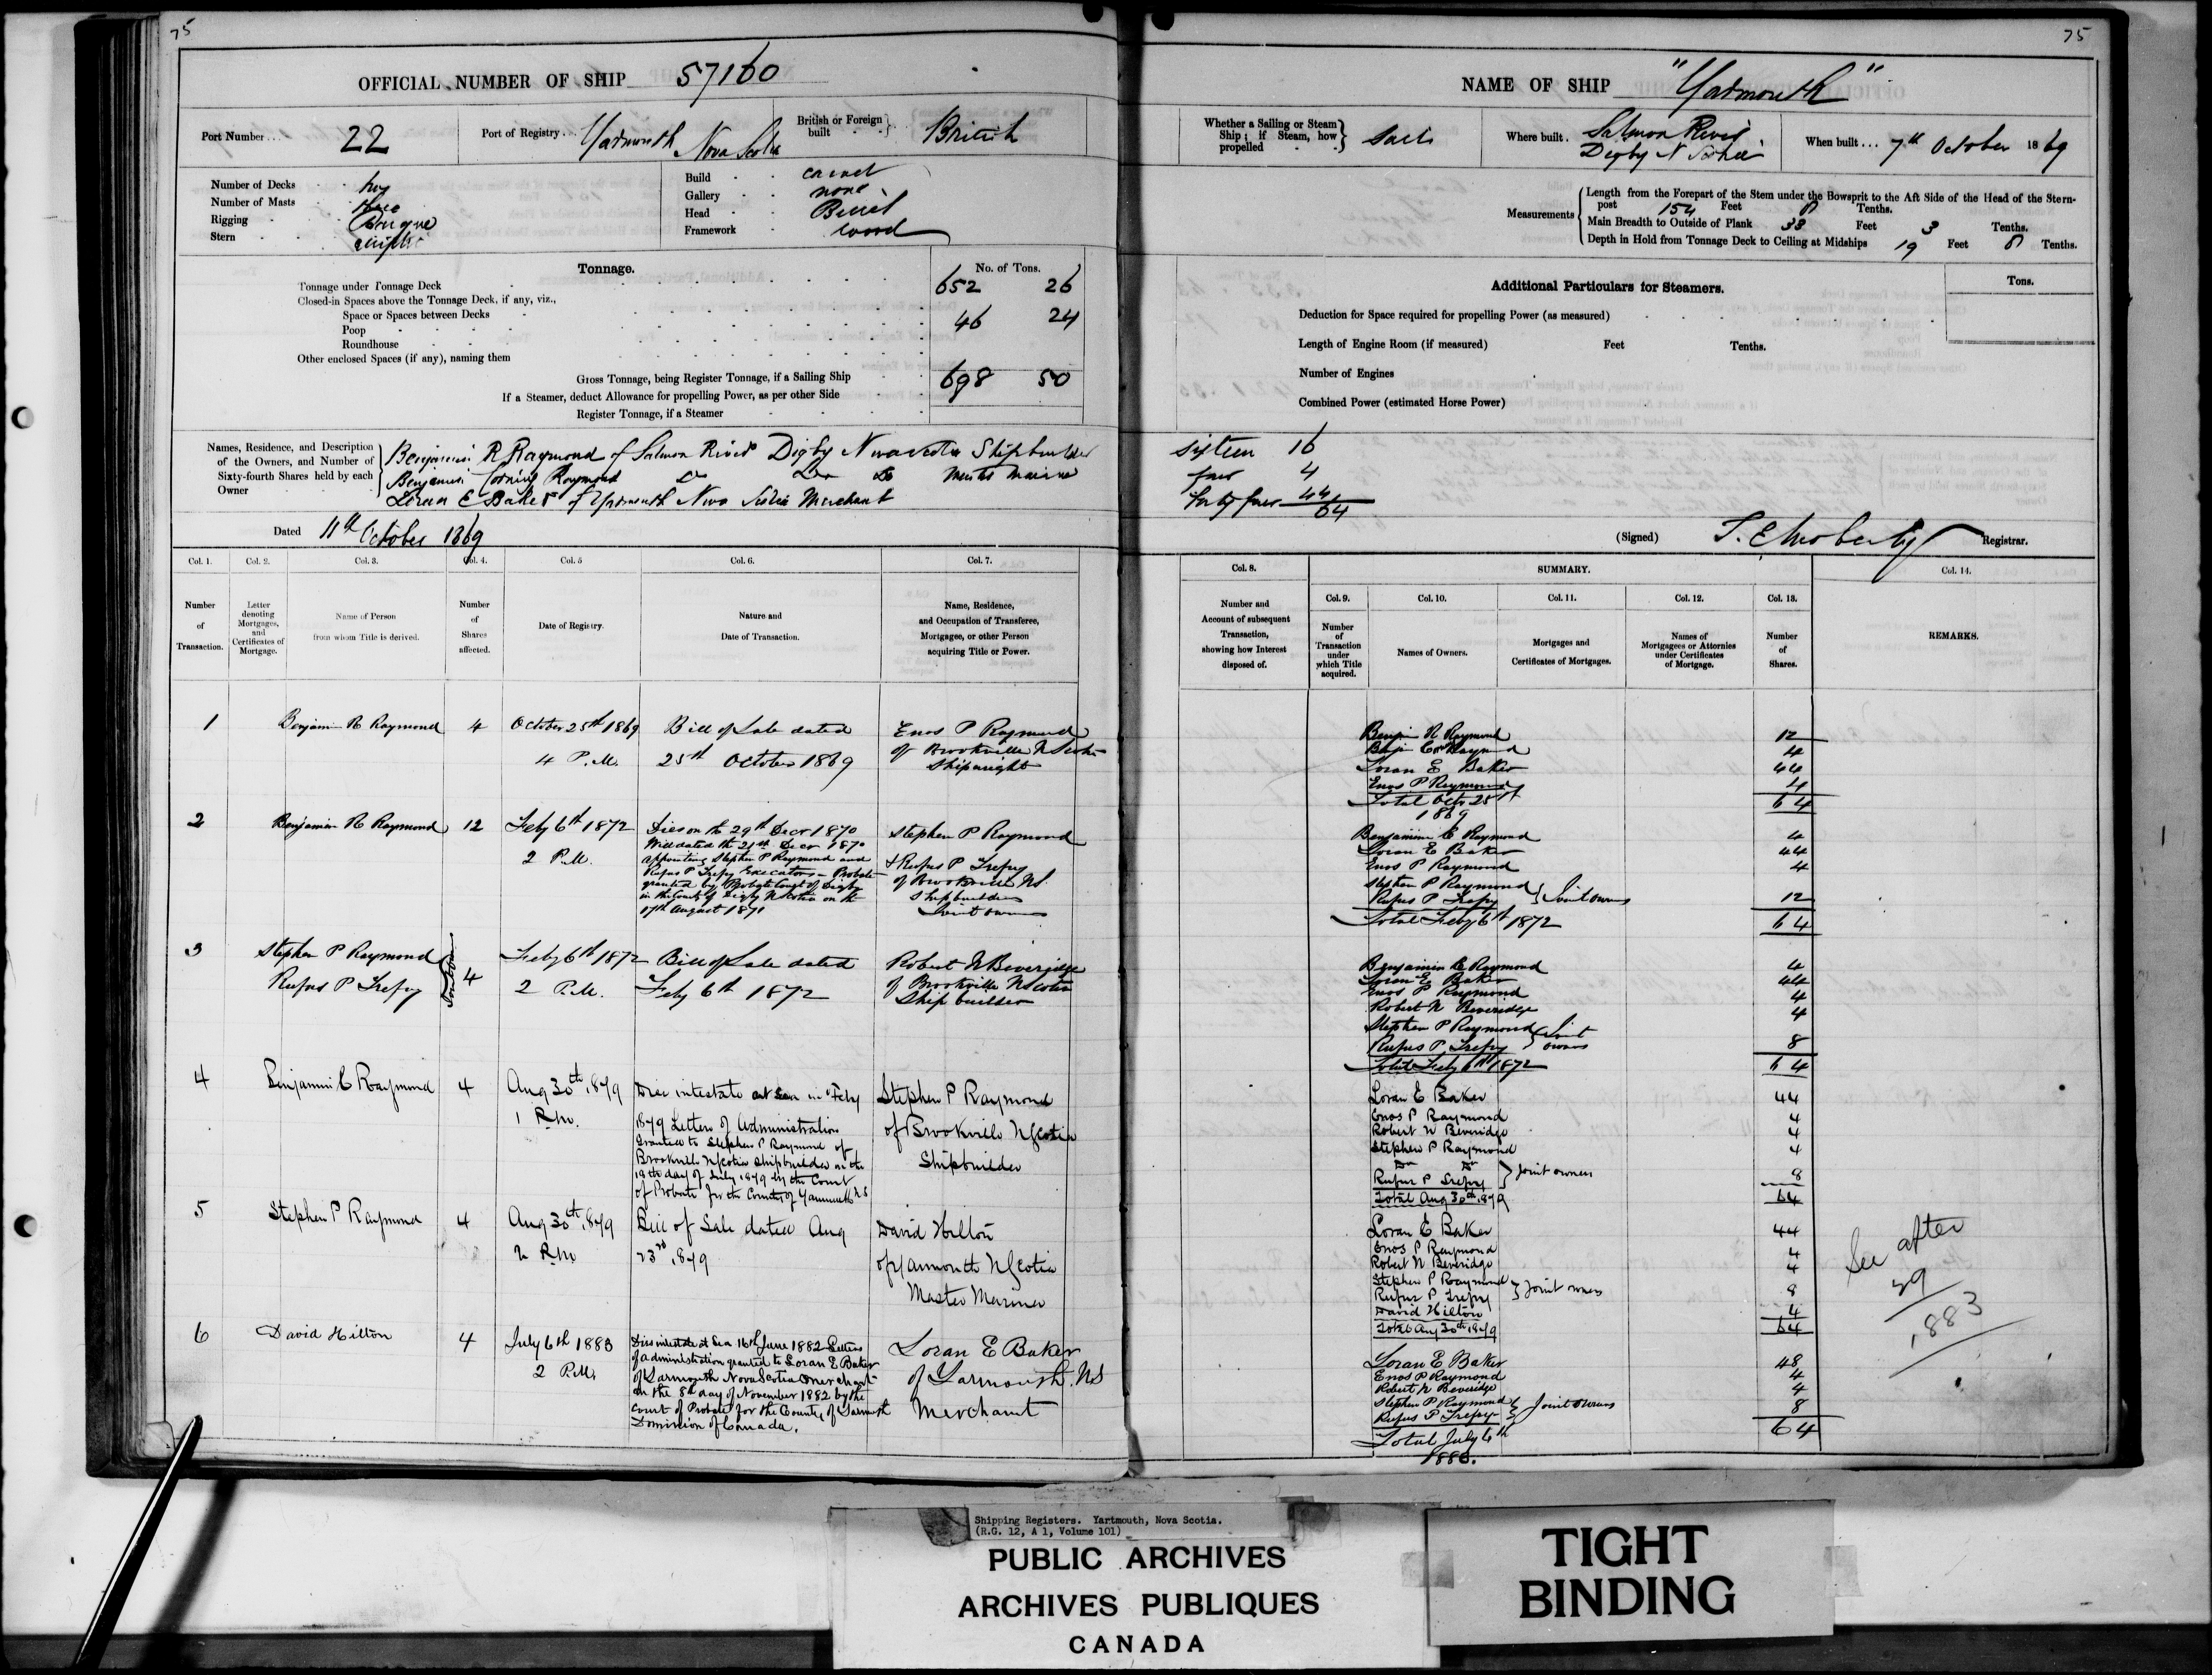 75
OFFICIAL NUMBER OF SHIP 57160
Port Number 22
Port of Registry Yarmouth Nova Scotia
British or Foreign built British
Number of Decks two
Number of Masts three
Rigging Barque
Stern elliptic
Build carvel
Gallery none
Head Billet
Framework wood
Tonnage.
No. of Tons.
Tonnage under Tonnage Deck 652 26
Closed-in Spaces above the Tonnage Deck, if any, viz.,
Space or Spaces between Decks
Poop 46 24
Roundhouse
Other enclosed Spaces (if any), naming them
Gross Tonnage, being Register Tonnage, if a Sailing Ship 698 50
If a Steamer, deduct Allowance for propelling Power, as per other Side
Register Tonnage, if a Steamer
Names, Residence, and Description of the Owners, and Number of Sixty-fourth Shares held by each Owner
Benjamin R Raymond of Salmon River Digby Nova Scotia Shipbuilder
Benjamin Corning Raymond Do Do Do Master Mariner
Loran E Baker of Yarmouth Nova Scotia Merchant
Dated 11th October 1869
75
NAME OF SHIP "Yarmouth"
Whether a Sailing or Steam Ship; if Steam, how propelled Sails
Where built. Salmon River Digby N Scotia
When built... 7th October 1869
Measurements
Length from the Forepart of the Stem under the Bowsprit to the Aft Side of the Head of the Stern-
post 154 Feet 8 Tenths.
Main Breadth to Outside of Plank 33 Feet 3 Tenths.
Depth in Hold from Tonnage Deck to Ceiling at Midships 19 Feet 8 Tenths.
Additional Particulars for Steamers.
Tons.
Deduction for Space required for propelling Power (as measured)
Length of Engine Room (if measured) Feet Tenths.
Number of Engines
Combined Power (estimated Horse Power)
Sixteen 16
four 4
forty four 44
64
(Signed) Registrar.
Col. 1. Col. 2. Col. 3. Col. 4. Col. 5 Col. 6. Col. 7.
Number of Transaction.
Letter denoting Mortgages, and Certificates of Mortgage.
Name of Person from whom Title is derived.
Number of Shares affected.
Date of Registry.
Nature and Date of Transaction.
Name, Residence, and Occupation of Transferee, Mortgagee, or other Person acquiring Title or Power.
1 Benjamin R Raymond 4 October 25th 1869 Bill of Sale dated Enos P Raymond
4 P.M. 25th October 1869 of Brookville N Scotia
Shipwright
2 Benjamin R Raymond 12 Feby 6th 1872 Dies on the 29th Decr 1870 Stephen P Raymond
2 P.M. Will dated the 21st Decr 1870
appointing Stephen P Raymond and & Rufus P Trefry
Rufus P Trefry Executors - Probate of Brookville NS.
granted by Probate Court of Digby Shipbuilders
in the County of Digby N Scotia on the Joint owners
17th August 1871
3 Stephen P Raymond Joint owners 4 Feby 6th 1872 Bill of Sale dated Robert N Beveridge
Rufus P Trefry 2 P.M. Feby 6th 1872 of Brookville N Scotia
Ship builder
4 Benjamin C Raymond 4 Aug 30th 1879 Dies intestate at Sea in Feby Stephen P Raymond
1 P.M. 1879 Letters of Administration of Brookville N Scotia
Granted to Stephen P Raymond of Shipbuilder
Brookville N Scotia Shipbuilder on the
19th day of July 1879 by the Court
of Probate for the County of Yarmouth NS
5 Stephen P Raymond 4 Aug 30th 1879 Bill of Sale dated Aug David Hilton
2 P.M. 23rd 1879 of Yarmouth N Scotia
Master Mariner
6 David Hilton 4 July 6th 1883 Dies intestate at Sea 16th June 1882 Letters Loran E Baker
2 P.M. of administration granted to Loran E Baker of Yarmouth. NS
of Yarmouth Nova Scotia Merchant Merchant
on the 8th day of November 1882 by the
Court of Probate for the County of Yarmouth
Dominion of Canada.
Col. 8.
SUMMARY.
Col. 14.
Col. 9. Col. 10. Col. 11. Col. 12. Col. 13.
Number and Account of subsequent Transaction, showing how Interest disposed of.
Number of Transaction under which Title acquired.
Names of Owners.
Mortgages and Certificates of Mortgages.
Names of Mortgagees or Attornies under Certificates of Mortgage.
Number of Shares.
REMARKS.
Benjn R Raymond 12
Benjn Corng Raymond 4
Loran E Baker 44
Enos P Raymond 4
Total Octr 25th 1869 64
Benjamin C Raymond 4
Loran E Baker 44
Enos P Raymond 4
Stephen P Raymond
Rufus P Trefry Joint owners 12
Total Feby 6th 1872 64
Benjamin C Raymond 4
Loran E Baker 44
Enos P Raymond 4
Robert N Beveridge 4
Stephen P Raymond Joint
Rufus P Trefry owners 8
Total Feby 6th 1872 64
Loran E Baker 44
Enos P Raymond 4
Robert N Beveridge 4
Stephen P Raymond 4
Do Do
Rufus P Trefry Joint owners 8
Total Aug 30th 1879 64
Loran E Baker 44
Enos P Raymond 4
Robert N Beveridge 4
Stephen P Raymond
Rufus P Trefry Joint owners 8
David Hilton 4
Total Aug 30th 1879 64
See after
29
1883
Loran E Baker 48
Enos P Raymond 4
Robert N Beveridge 4
Stephen P Raymond
Rufus P Trefry Joint Owners 8
Total July 6th 1883. 64
Shipping Registers. Yartmouth, Nova Scotia.
(R.G. 12, A 1, Volume 101)
PUBLIC ARCHIVES
ARCHIVES PUBLIQUES
CANADA
TIGHT
BINDING